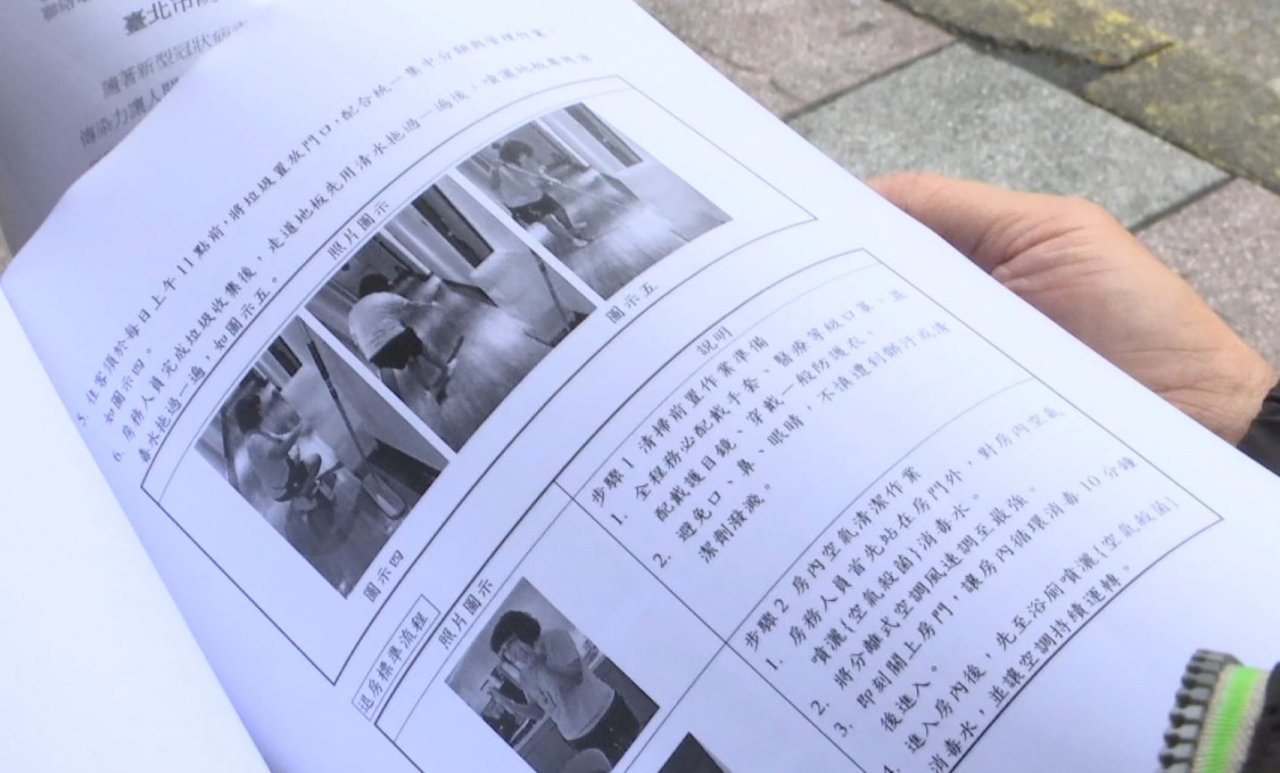 臺北市防
隨著新型冠狀病
傳染力讓人
5. 住客須於每日上午11點前，將垃圾置放門口，配合統一集中分類與管理作業，
如圖示四。
6. 房務人員完成垃圾收集後，走道地板先用清水拖過一遍後，噴灑地板專用消
毒水拖過一遍，如圖示五。
照片圖示
圖示四
圖示五
退房標準流程
照片圖示
說明
步驟1 清掃前置作業準備
1. 全程務必配戴手套、醫療等級口罩，並
配戴護目鏡、穿戴一般防護衣。
2. 避免口、鼻、眼睛，不慎遭到髒污或清
潔劑潑濺。
步驟2 房內空氣清潔作業
1. 房務人員首先站在房門外，對房內空氣
噴灑{空氣殺菌}消毒水。
2. 將分離式空調風速調至最強。
3. 即刻關上房門，讓房內循環消毒10分鐘
後進入。
4. 進入房內後，先至浴廁噴灑{空氣殺菌}
消毒水，並讓空調持續運轉。